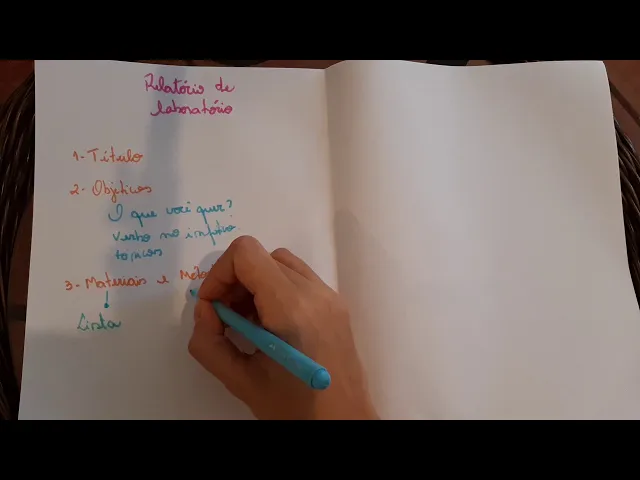 Relatório de
laboratório
1- Título
2- Objetivos
O que você quer?
Verbo no
tópicos
3- Materiais e
Lista